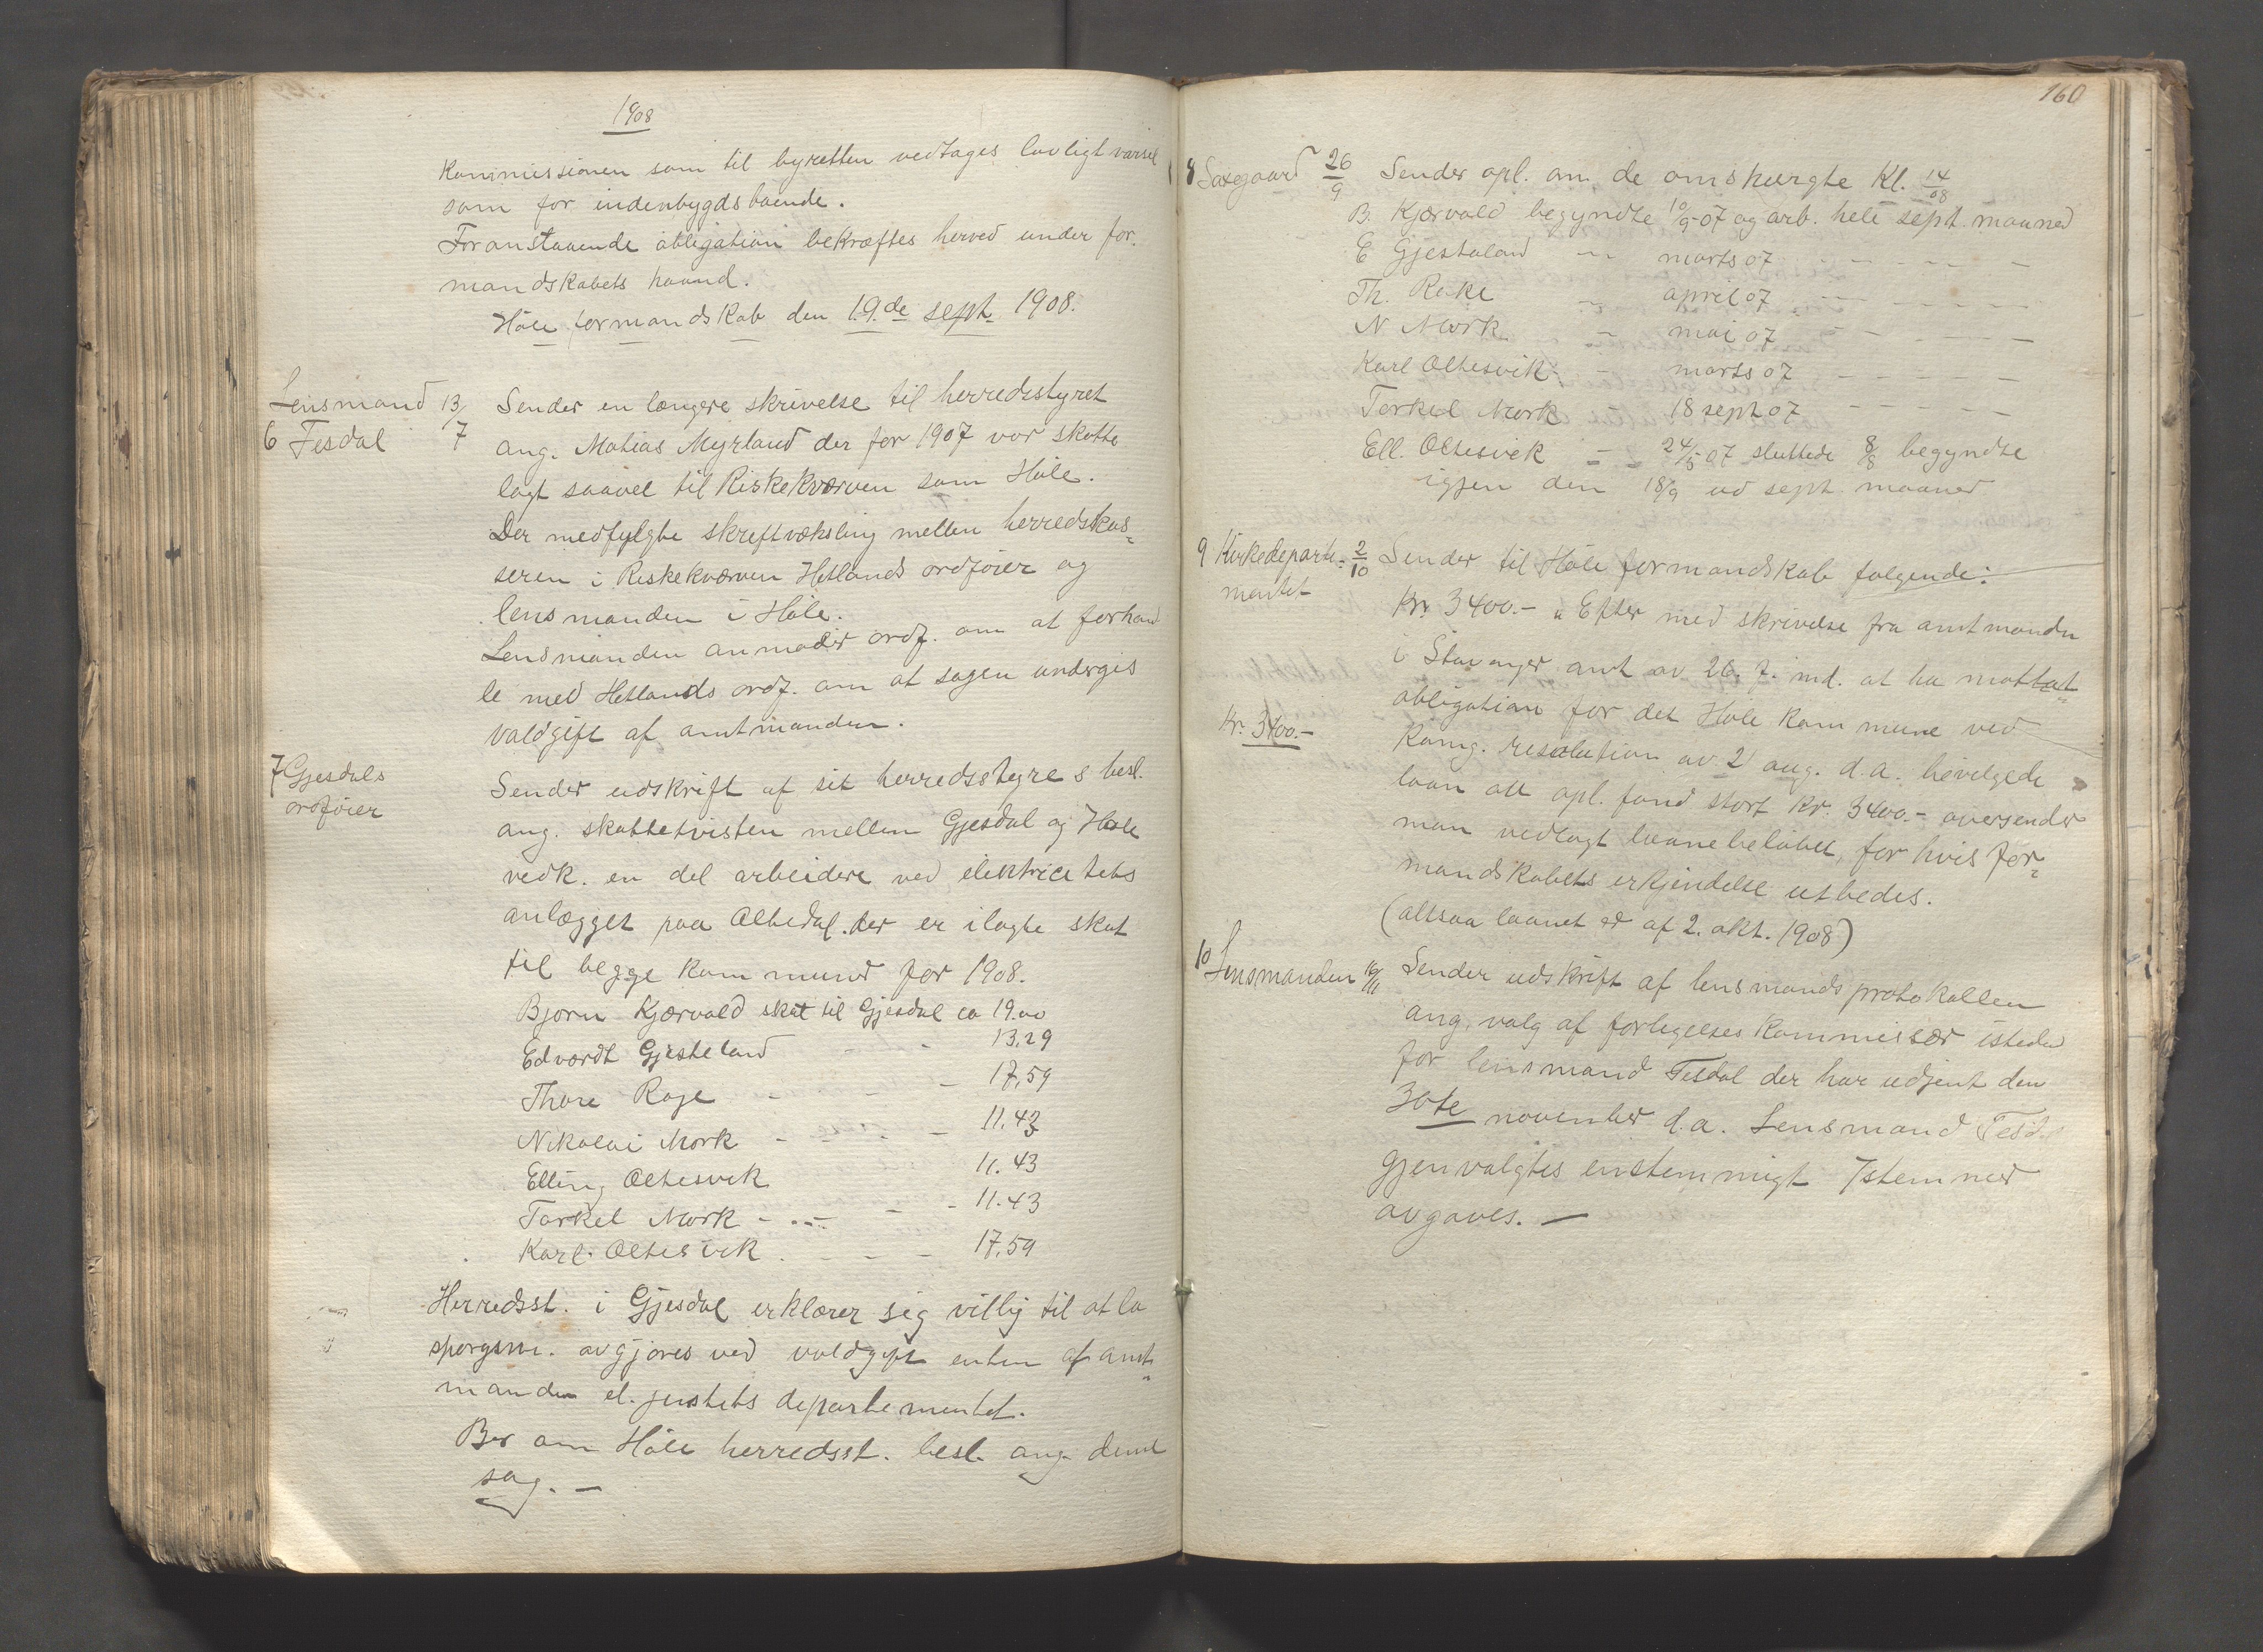 1908
Kommissionen som til byretten vedtages lovligt varsel
som for indenbygdsboende.
Foranstaaende obligation bekræftes herved under for-
mandskabets haand.
Høle formandskab den 19.de sept. 1908.
Lensmand 13/7 Sender en længere skrivelse til herredsstyret
6 Tesdal ang. Matias Myrland der for 1907 var skatte
lagt saavel til Riskekværven som Høle.
Der medfylgte skriftveksling mellem herredskas-
seren i Riskekværven Hetlands ordfører og
lensmanden i Høle.
Lensmanden anmoder ordf. om at forhand
le med Hetlands ordf. om at sagen undergis
voldgift af amtmanden.
7 Gjesdals
ordføier
Sender udskrift af sit herredsstyres besl.
ang. skattetvisten mellem Gjesdal og Høle
vedk. en del arbeidere ved elektricitets
anlægget paa Oltedal der er ilagte skat
til begge kommuner for 1908.
Bjørn Kjærvold skat til Gjesdal ca 19.00
Edvardt Gjesteland - - 13.29
Thore Rage - - - 17,59
Nikolai Mork - - - 11.43
Elling Oltesvik 11.43
Torkel Mork - - - - 11.43
Karl Oltesvik - - - 17,59
Herredsst. i Gjesdal erklærer sig villig til at la
spørgsm. avgjøres ved voldgift enten af amt-
manden el. justits departementet.
Ber om Høle herredsst. besl. ang. denne
sag. -
160
8 Saxegaard 26/9 Sender opl. om de omspurgte Kl. 14/08
B. Kjærvold begyndte 10/9 07 og arb. hele sept. maaned
E Gjesteland - - marts 07 - - - - -
Th. Rake - - april 07 - - - - -
N Mork - mai 07 - - - - -
Karl Oltesvik - marts 07 - - - - -
Torkel Mork - - 18 sept 07 - - - -
Ell. Oltesvik - - 24/5 07 sluttede 8/8 begyndte
igjen den 18/9 ud sept. maaned
9 Kirkedeparte- 2/10 Sender til Høle formandskab følgende:
mentet
Kr. 3400.- "Efter med skrivelse fra amtmanden
i Stavanger amt av 26. f. md. at ha mottat
obligation for det Høle kommune ved
Kr. 3400.-
kong. resolution av 21 aug. d.a. bevilgede
laan av opl. fond stort kr. 3400.- oversender
man vedlagt laanebeløbet, for hvis for-
mandskabets erkjendelse utbedes.
(altsaa laanet er af 2. okt. 1908)
10 Lensmanden 16/11 Sender udskrift af lensmandsprotokollen
ang. valg af forligelseskommissær isteden
for lensmand Tesdal der har udtjent den
30te november d.a. Lensmand Tesdal
gjenvalgtes enstemmigt 7 stemmer
avgaves. -